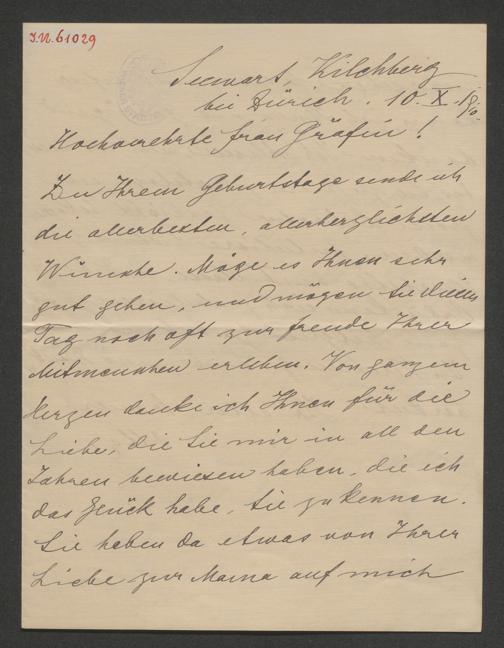 J.N. 61029
Seewart, Kilchberg
bei Zürich. 10. X.
Hochverehrte Frau Gräfin!
Zu Ihrem Geburtstage sende ich
die allerbesten, allerherzlichsten
Wünsche. Möge es Ihnen sehr
gut gehen, und mögen Sie diesen
Tag noch oft zur Freude Ihrer
Mitmenschen erleben. Von ganzem
Herzen danke ich Ihnen für die
Liebe, die Sie mir in all den
Jahren bewiesen haben, die ich
das Glück habe, Sie zu kennen.
Sie haben da etwas von Ihrer
Liebe zur Mama auf mich